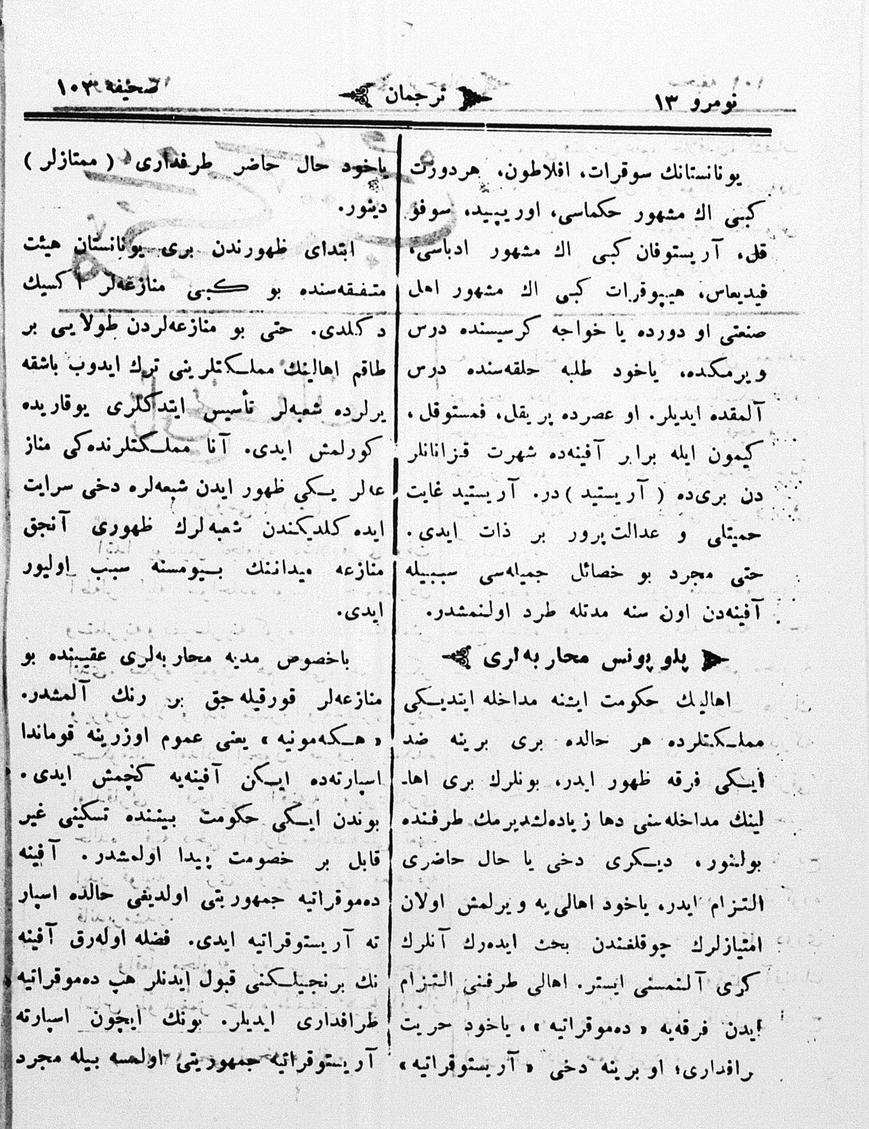 نومرو ١٣
ترجمان
صحیفه ١٠٣
یونانستانك سوقرات، افلاطون، هردورت
كبی اك مشهور حكماسی، اوریپید، سوفو
قل، آریستوفان كبی اك مشهور ادباسی،
فیدیعاس، هیپوقرات كبی اك مشهور اهل
صنعتی او دورده یا خواجه كرسیسنده درس
ویرمكده، یاخود طلبه حلقه‌سنده درس
آلمقده ایدیلر. او عصرده پریقل، فمستوقل،
كیمون ایله برابر آفینه‌ده شهرت قزانانلر
دن بری‌ده ( آریستید ) در. آریستید غایت
حمیتلی و عدالت‌پرور بر ذات ایدی.
حتی مجرد بو خصائل جمیله‌سی سببیله
آفینه‌دن اون سنه مدتله طرد اولنمشدر.
پلوپونس محاربه‌لری
اهالینك حكومت ایشنه مداخله ایتدیكی
مملكتلرده هر حالده بری برینه ضد
ایكی فرقه ظهور ایدر، بونلرك بری اها‌ـ
لینك مداخله‌سنی دها زیاده‌لشدیرمك طرفنده
بولنور، دیكری دخی یا حال حاضری
التزام ایدر، یاخود اهالی‌یه ویرلمش اولان
امتیازلرك چوقلغندن بحث ایده‌رك آنلرك
كری آلنمسنی ایستر. اهالی طرفنی التزام
ایدن فرقه‌یه «ده‌موقراتیه»، یاخود حریت
رافداری؛ او برینه دخی «آریستوقراتیه»
یاخود حال حاضر طرفداری ( ممتازلر )
دینور.
ابتدای ظهورندن بری یونانستان هیئت
متفقه‌سنده بو كبی منازعه‌لر اكسیك
دكلدی. حتی بو منازعه‌لردن طولایی بر
طاقم اهالینك مملكتلرینی ترك ایدوب باشقه
یرلرده شعبه‌لر تأسیس ایتدكلری یوقاریده
كورلمش ایدی. آنا مملكتلرنده‌كی مناز
عه‌لر یكی ظهور ایدن شبعه‌لره دخی سرایت
ایده كلدیكندن شعبه‌لرك ظهوری آنجق
منازعه میداننك بیومسنه سبب اولیور
ایدی.
باخصوص مدیه محاربه‌لری عقیبنده بو
منازعه‌لر قورقیله‌جق بر رنك آلمشدر.
«هكه‌مونیه» یعنی عموم اوزرینه قوماندا
اسپارته‌ده ایكن آفینه‌یه كچمش ایدی.
بوندن ایكی حكومت بیننده تسكینی غیر
قابل بر خصومت پیدا اولمشدر. آفینه
ده‌موقراتیه جمهوریتی اولدیغی حالده اسپار
ته آریستوقراتیه ایدی. فضله اوله‌رق آفینه
نك برنجیلكنی قبول ایدنلر هپ ده‌موقراتیه
طرافداری ایدیلر. بونك ایچون اسپارته
آریستوقراتیه جمهوریتی اولمسه بیله مجرد